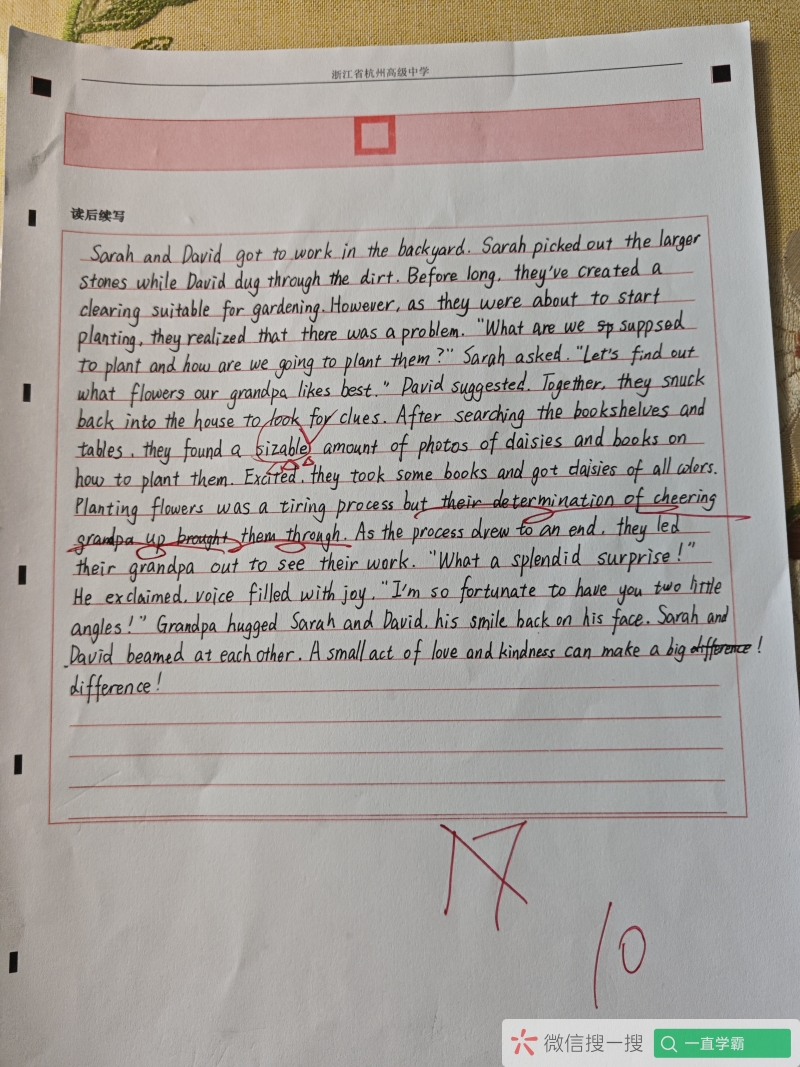 浙江省杭州高级中学
读后续写
Sarah and David got to work in the backyard. Sarah picked out the larger
stones while David dug through the dirt. Before long, they've created a
clearing suitable for gardening. However, as they were about to start
planting, they realized that there was a problem. "What are we sp suppsed
to plant and how are we going to plant them?" Sarah asked. "Let's find out
what flowers our grandpa likes best." David suggested. Together, they snuck
back into the house to look for clues. After searching the bookshelves and
tables, they found a sizable amount of photos of daisies and books on
how to plant them. Excited, they took some books and got daisies of all colors.
Planting flowers was a tiring process but their determination of cheering
grandpa up brought them through. As the process drew to an end, they led
their grandpa out to see their work. "What a splendid surprise!"
He exclaimed, voice filled with joy. "I'm so fortunate to have you two little
angles!" Grandpa hugged Sarah and David, his smile back on his face. Sarah and
David beamed at each other. A small act of love and kindness can make a big difference!
difference!
17
10
微信搜一搜
一直学霸